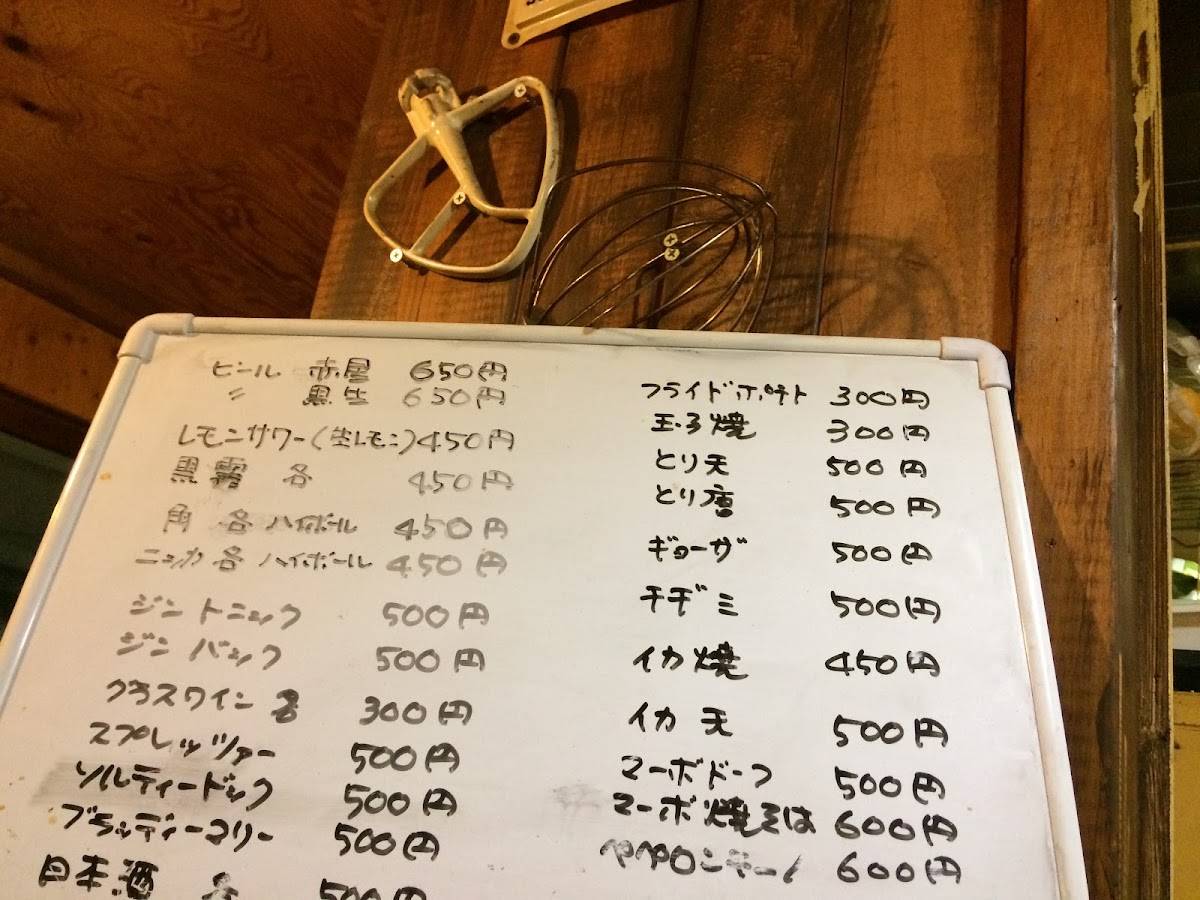 ビール 赤星 650円
〃 黒生 650円
レモンサワー(生レモン)450円
黒霧 各 450円
角 各 ハイボール 450円
ニッカ 各 ハイボール 450円
ジントニック 500円
ジンバック 500円
グラスワイン 各 300円
スプレッツァー 500円
ソルティードック 500円
ブラッディーマリー 500円
日本酒 各 500円
フライドポテト 300円
玉子焼 300円
とり天 500円
とり唐 500円
ギョーザ 500円
チヂミ 500円
イカ焼 450円
イカ天 500円
マーボドーフ 500円
マーボ焼そば 600円
ペペロンチーノ 600円